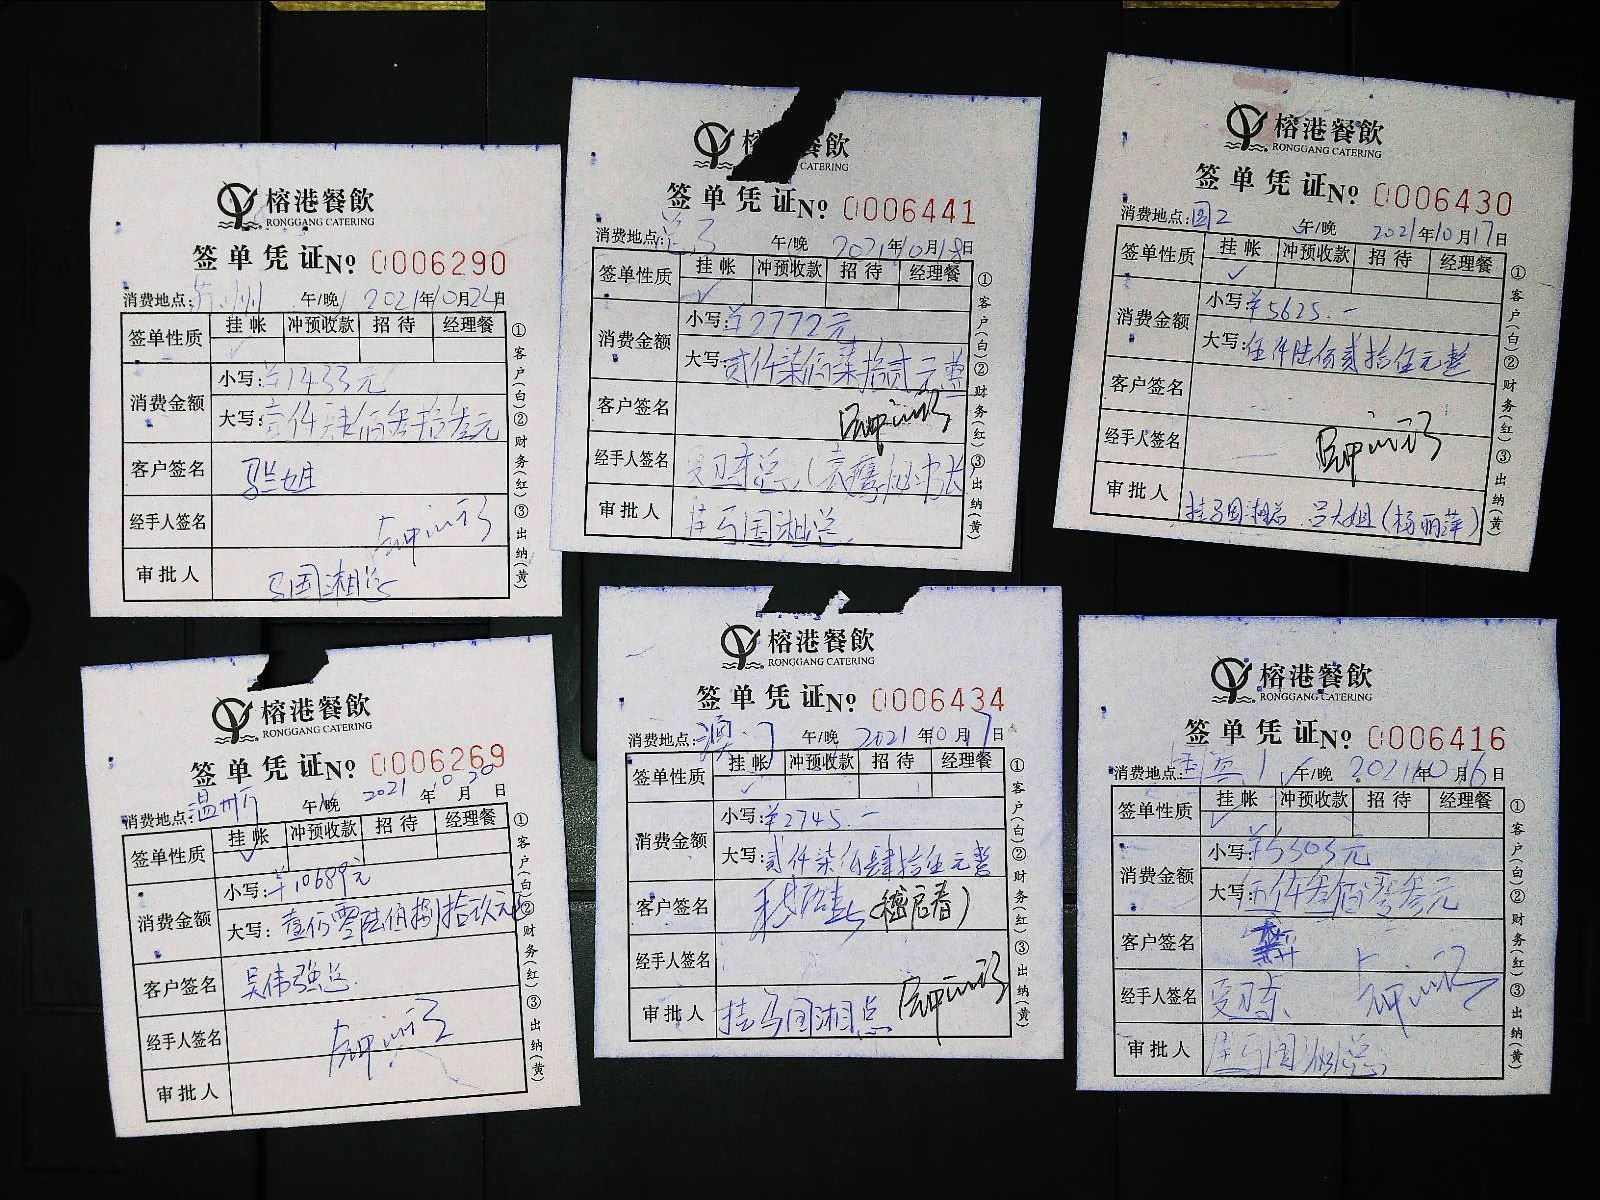 榕港餐飲
RONGGANG CATERING
签单凭证№ 0006290
消费地点: 午/晚 2021年10月24日
签单性质 挂帐 冲预收款 招待 经理餐
消费金额 小写:¥1433元
大写:壹仟肆佰叁拾叁元
客户签名
经手人签名
审批人 马国湘总
①客户(白)②财务(红)③出纳(黄)
餐飲
CATERING
签单凭证№ 0006441
消费地点: 午/晚 2021年10月18日
签单性质 挂帐 冲预收款 招待 经理餐
消费金额 小写:¥2772元
大写:贰仟柒佰柒拾贰元整
客户签名
经手人签名
审批人 挂马国湘总
①客户(白)②财务(红)③出纳(黄)
榕港餐飲
RONGGANG CATERING
签单凭证№ 0006430
消费地点:国2 午/晚 2021年10月17日
签单性质 挂帐 冲预收款 招待 经理餐
消费金额 小写:¥5625.一
大写:伍仟陆佰贰拾伍元整
客户签名
经手人签名
审批人 挂马国湘总 吕大姐(杨丽萍)
①客户(白)②财务(红)③出纳(黄)
榕港餐飲
RONGGANG CATERING
签单凭证№ 0006269
消费地点:温州厅 午/晚 2021年10月20日
签单性质 挂帐 冲预收款 招待 经理餐
消费金额 小写:¥10689元
大写:壹万零陆佰捌拾玖元
客户签名 吴伟强总
经手人签名
审批人
①客户(白)②财务(红)③出纳(黄)
榕港餐飲
RONGGANG CATERING
签单凭证№ 0006434
消费地点:澳门 午/晚 2021年10月17日
签单性质 挂帐 冲预收款 招待 经理餐
消费金额 小写:¥2745.一
大写:贰仟柒佰肆拾伍元整
客户签名 (嵇启春)
经手人签名
审批人 挂马国湘总
①客户(白)②财务(红)③出纳(黄)
榕港餐飲
RONGGANG CATERING
签单凭证№ 0006416
消费地点: 午/晚 2021年10月16日
签单性质 挂帐 冲预收款 招待 经理餐
消费金额 小写:¥5303元
大写:伍仟叁佰零叁元
客户签名
经手人签名
审批人 挂马国湘总
①客户(白)②财务(红)③出纳(黄)